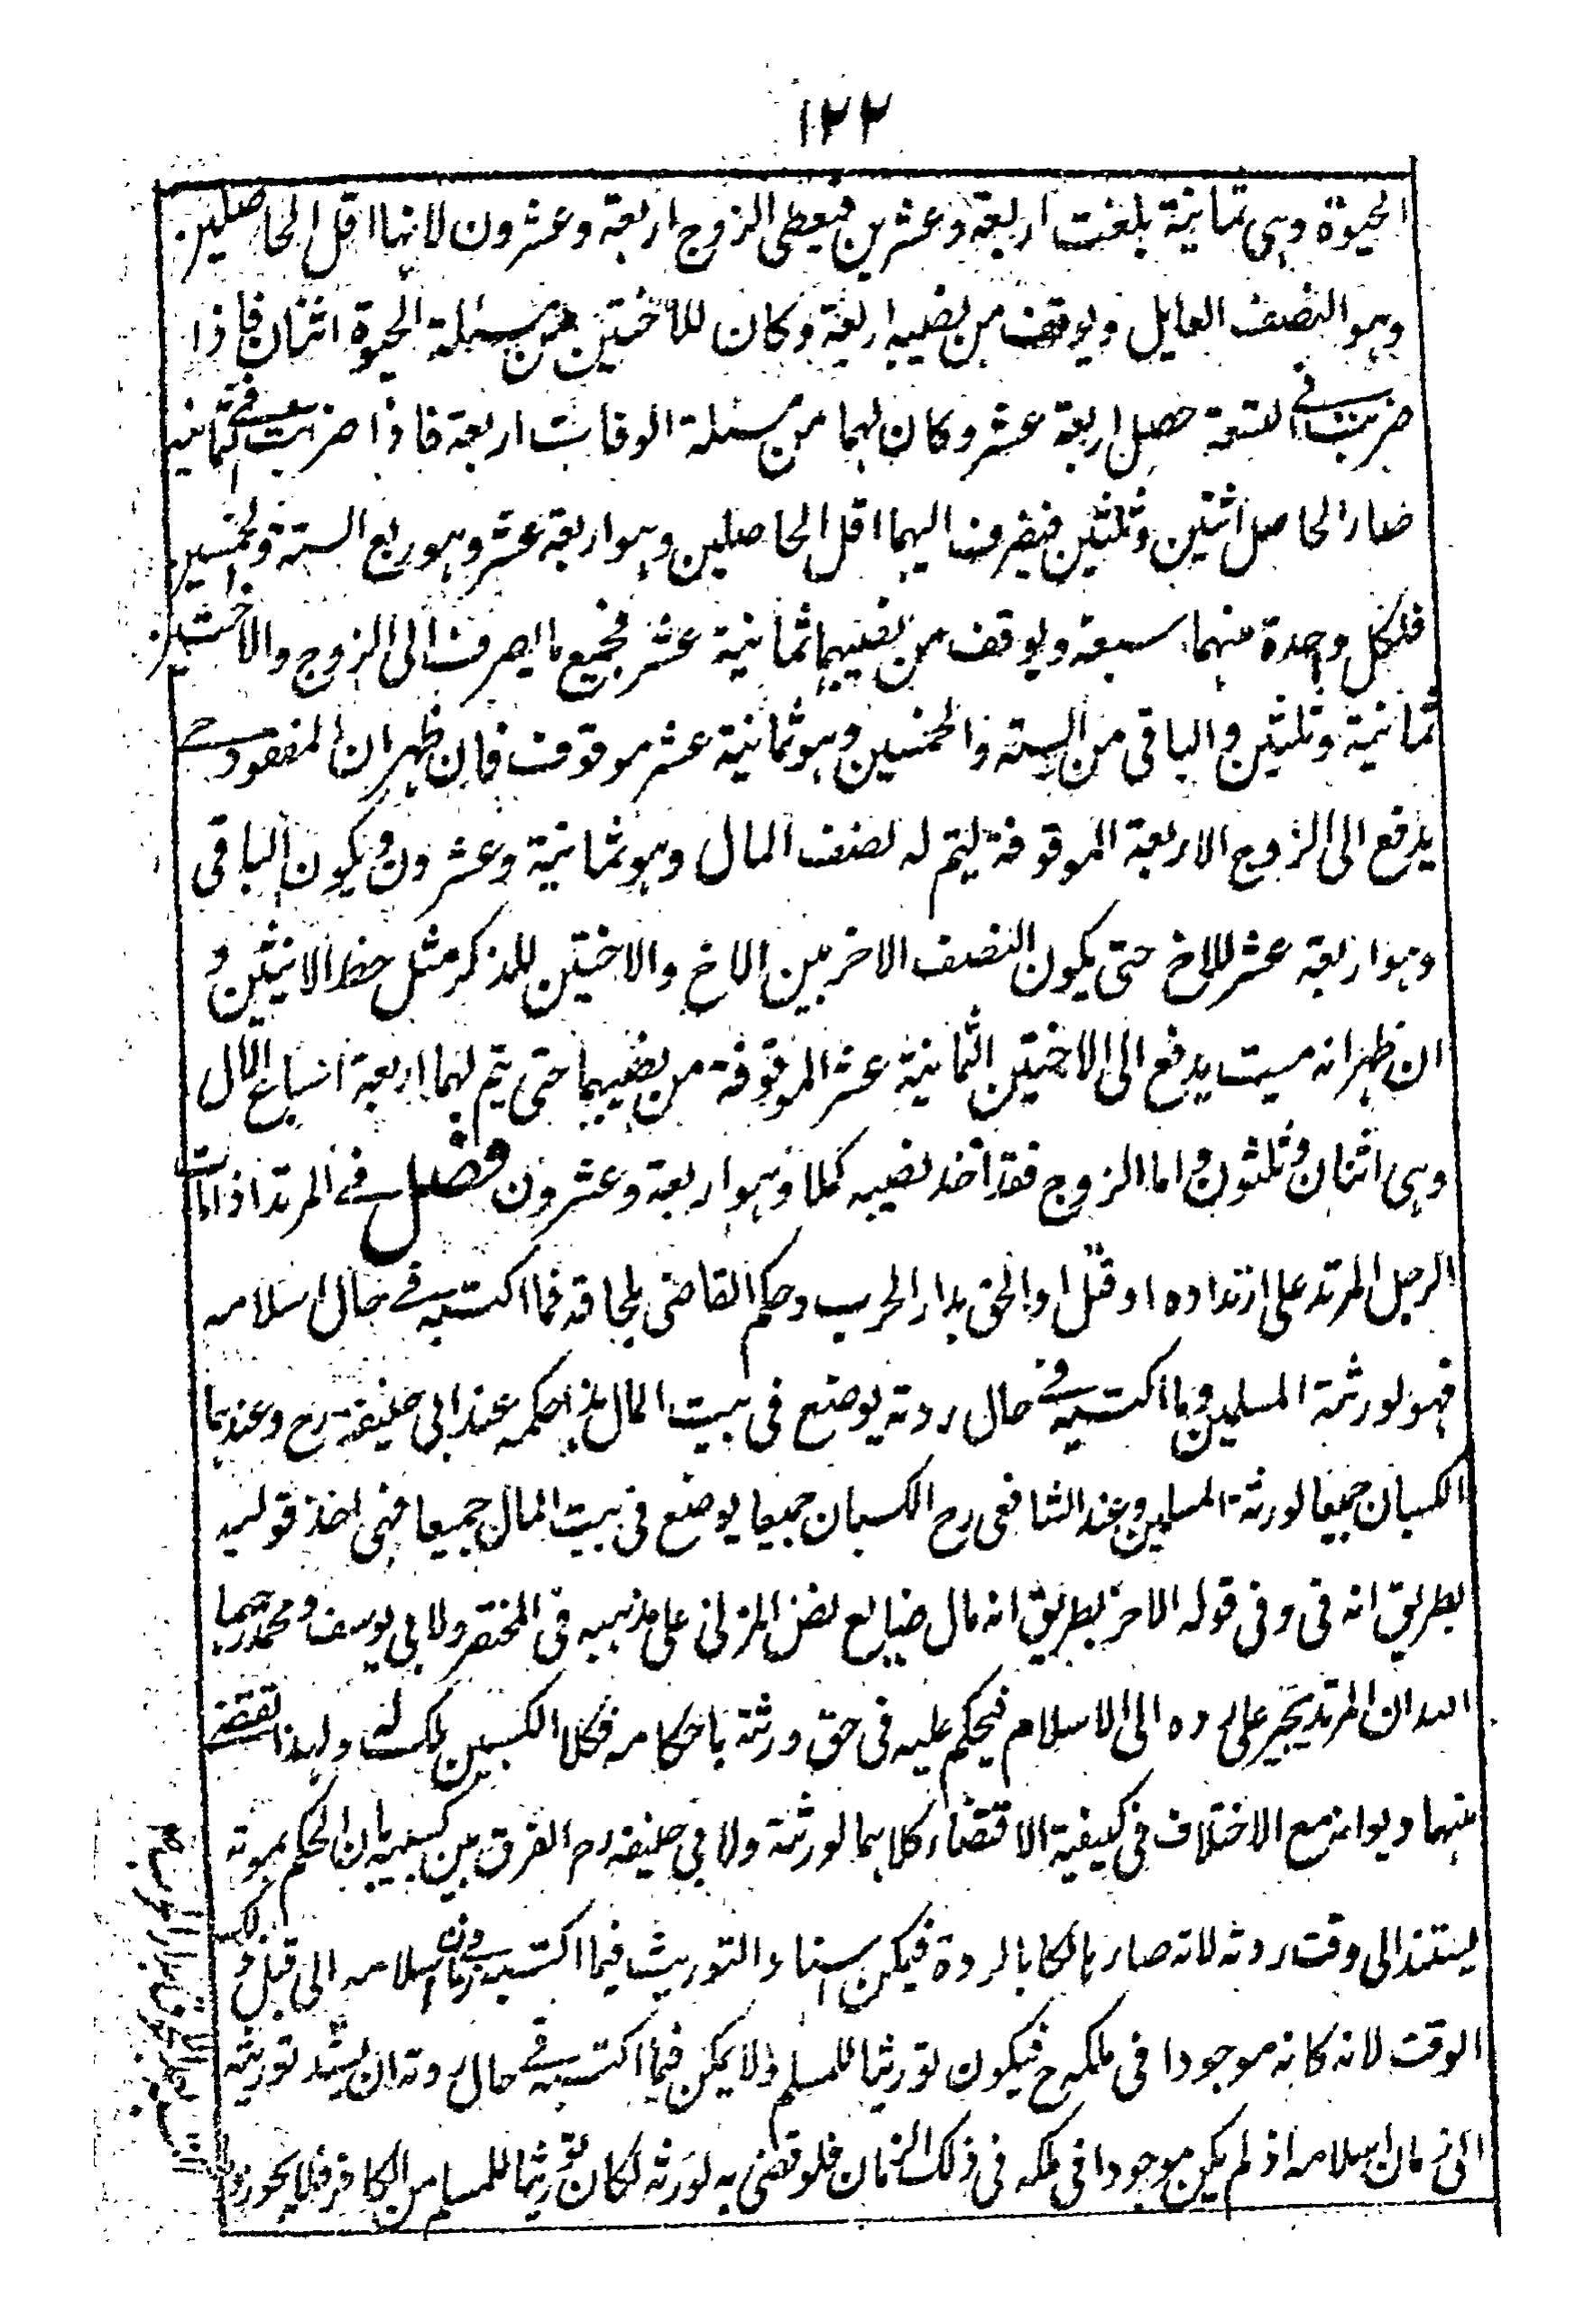 ١٢٢
الحيوة وهى ثمانية بلغت اربعة وعشرين فيعطى الزوج اربعة وعشرون لانها اقل الحاصلين
وهو النصف العايل ويوقف من نصيبه اربعة وكان للاختين من مسئلة الحيوة اثنان فاذا
ضربت فى السبعة حصل اربعة عشر وكان لهما من مسئلة الوفات اربعة فاذا ضربت فى ثمانية
صار الحاصل اثنين وثلثين فيصرف اليهما اقل الحاصلين وهو اربعة عشر وهو ربع الستة وخمسين
فلكل وحدة منهما سبعة ويوقف من نصيبهما ثمانية عشر فجميع ما يصرف الى الزوج والاختين
ثمانية وثلثين والباقى من الستة والخمسين وهو ثمانية عشر موقوف فان ظهر ان المفقود حى
يدفع الى الزوج الاربعة الموقوفة ليتم له نصف المال وهو ثمانية وعشرون ويكون الباقى
وهو اربعة عشر للاخ حتى يكون النصف الاخر بين الاخ والاختين للذكر مثل حظ الانثيين و
ان ظهر انه ميت يدفع الى الاختين الثمانية عشر الموقوفة من نصيبهما حتى يتم لهما اربعة اسباع المال
وهى اثنان وثلثون واما الزوج فقد اخذ نصيبه كملا وهو اربعة وعشرون فصل فى المرتد اذا مات
الرجل المرتد على ارتداده او قتل او الحق بدار الحرب وحكم القاضى بلحاقه فما اكتسبه فى حال اسلامه
فهو لورثة المسلمين وما اكتسبه فى حال ردته يوضع فى بيت المال هذا حكمه عند ابى حنيفة رح وعندهما
الكسبان جميعا لورثة المسلمين وعند الشافعى رح الكسبان جميعا يوضع فى بيت المال جميعا فهى احد قوليه
بطريق انه فى وفى قوله الاخر بطريق انه مال ضايع نص المزنى على مذهبه فى المختصر ولابى يوسف ومحمد رحمهما
الله ان المرتد يجبر على رده الى الاسلام فيحكم عليه فى حق ورثة باحكامه فكلا الكسبين ملك له ولهذا تقضى
منهما ديوانه مع الاختلاف فى كيفية الاقتضاء كلاهما لورثة ولابى حنيفه رح الفرق بين كسبيه بان الحكم بموته
يستند الى وقت ردته لانه صار هالكا بالردة فيمكن اسناد التوريث فيما اكتسبه فى زمان اسلامه الى قبل ذلك
الوقت لانه كانه موجودا فى ملكه ح فيكون توريثا للمسلم ولا يمكن فيما اكتسبه فى حال ردته ان يسند توريثه
الى زمان اسلامه اذ لم يكن موجودا فى ملكه فى ذلك الزمان فلو قضى به لورثه لكان توريثا للمسلم من الكافر فلا يجوز